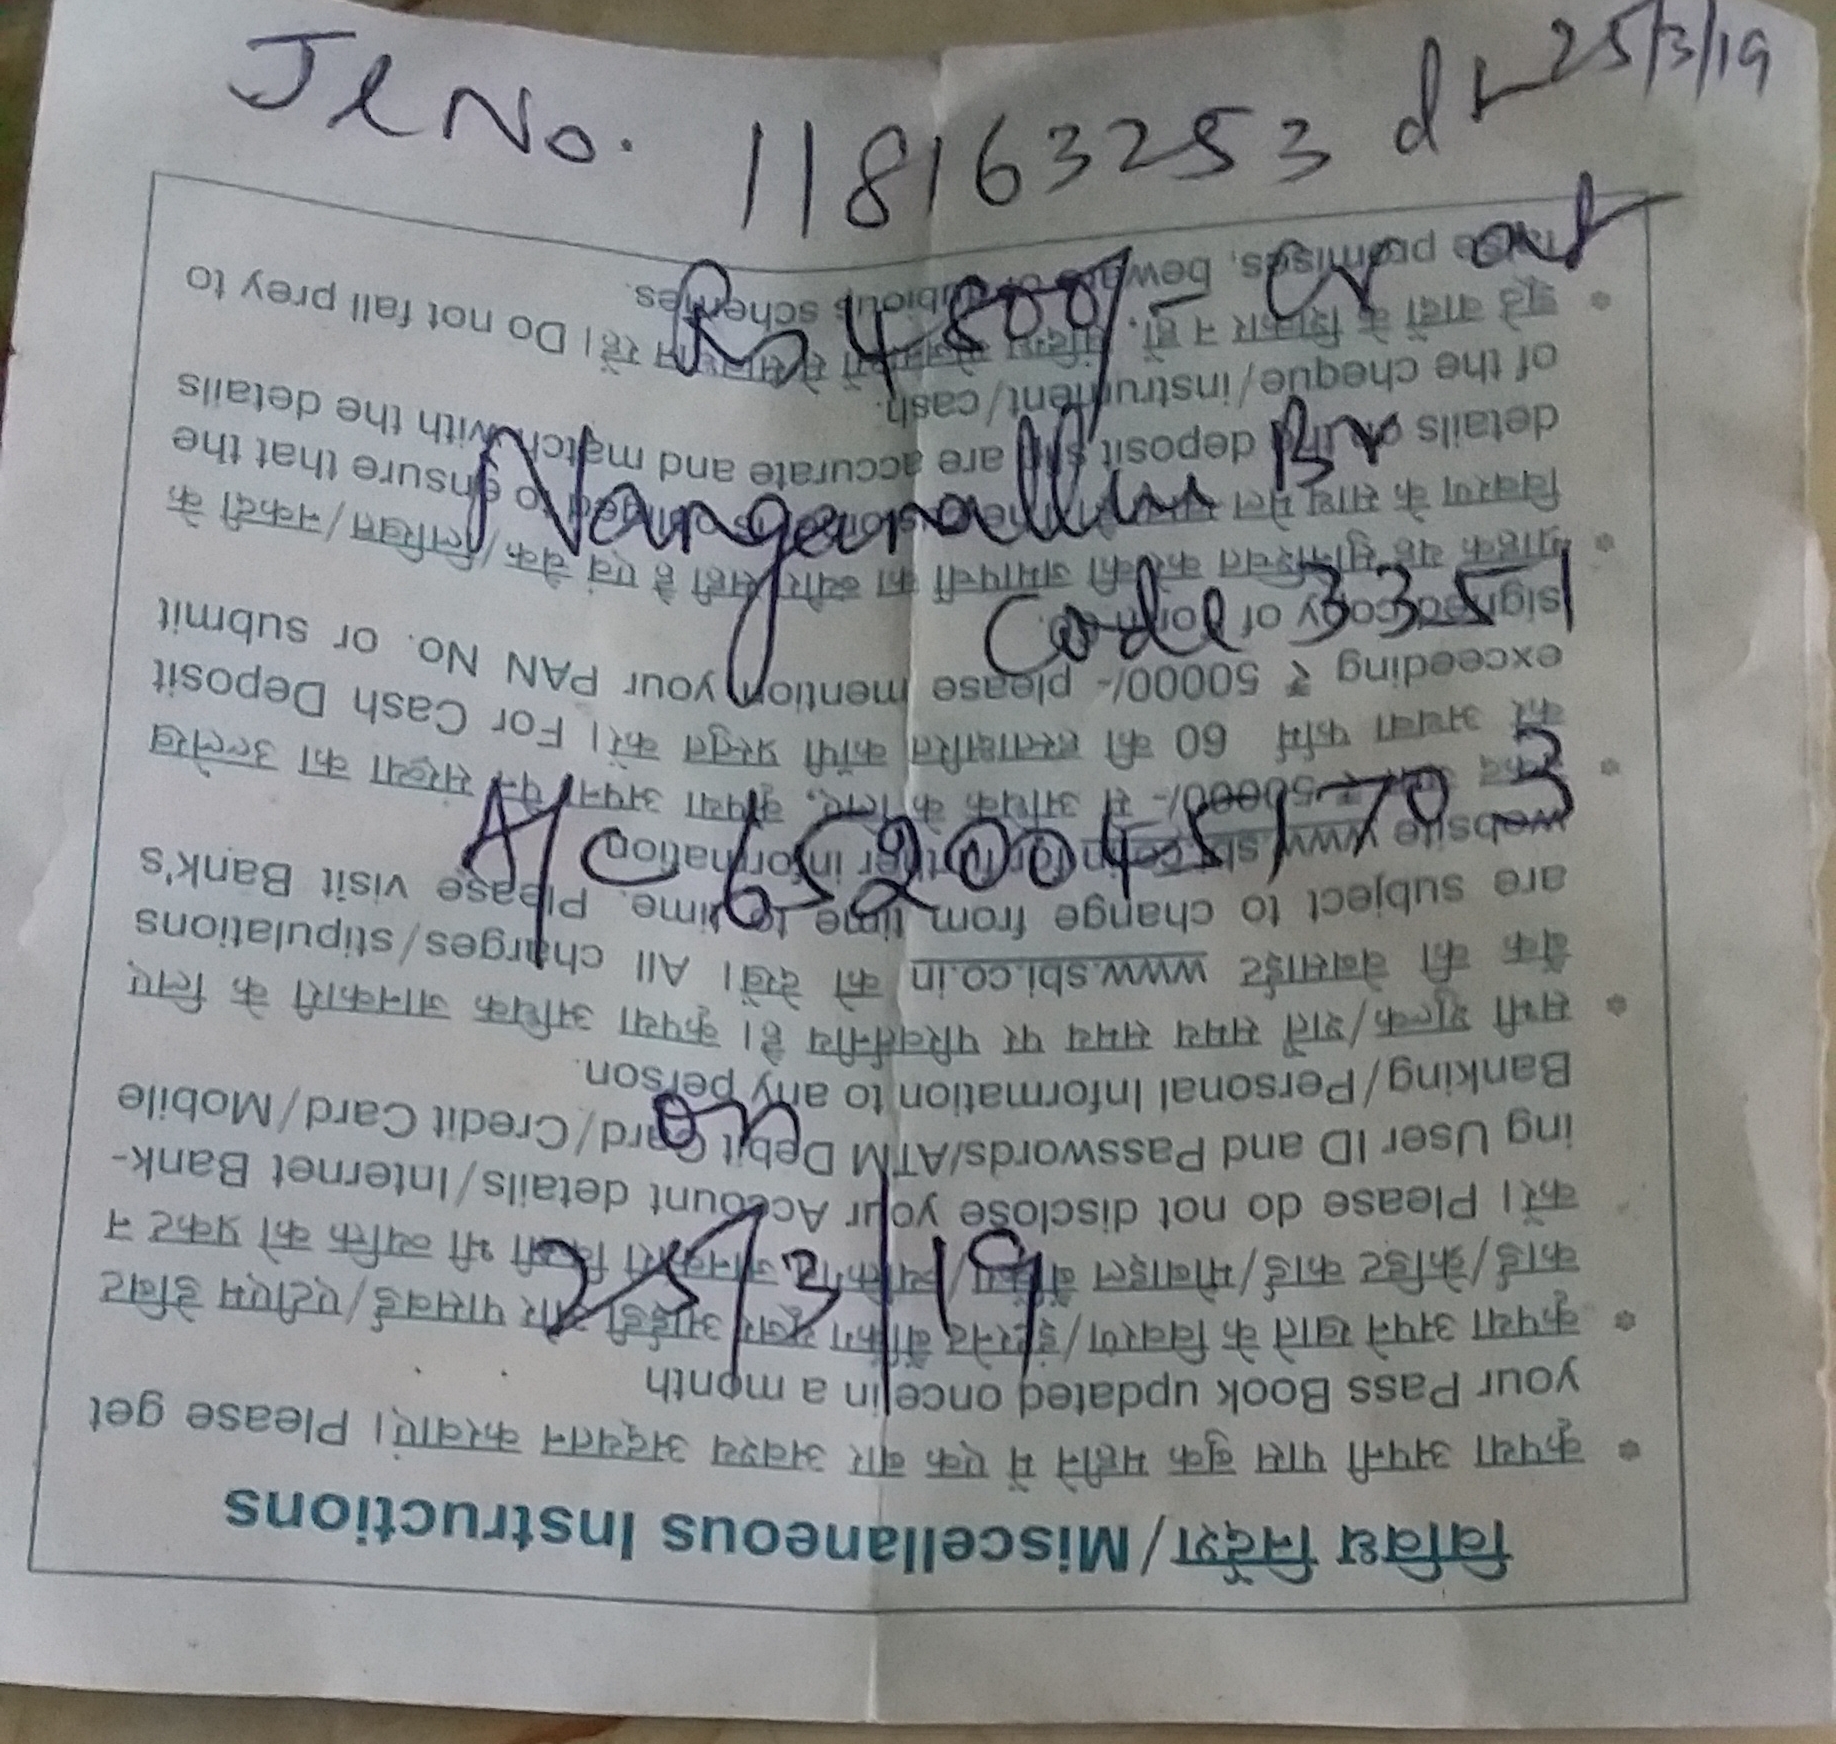 Jl No. 118163253 dt 25/3/19
Rs 4800/- Cr at
Nanganallur Br
Code 3351
A/C 65200451703
on
25/3/19
विविध निर्देश/Miscellaneous Instructions
कृपया अपनी पास बुक महीने में एक बार अवश्य अद्यतन करवाएं। Please get
your Pass Book updated once in a month
कृपया अपने खाते के विवरण/इंटरनेट बैंकिंग यूजर आईडी और पासवर्ड/एटीएम डेबिट
कार्ड/क्रेडिट कार्ड/मोबाइल बैंकिंग/व्यक्तिगत जानकारी किसी भी व्यक्ति को प्रकट न
करें। Please do not disclose your Account details/Internet Bank-
ing User ID and Passwords/ATM Debit Card/Credit Card/Mobile
Banking/Personal Information to any person.
सभी शुल्क/शर्तें समय समय पर परिवर्तनीय हैं। कृपया अधिक जानकारी के लिए
बैंक की वेबसाईट www.sbi.co.in को देखें। All charges/stipulations
are subject to change from time to time. Please visit Bank's
website www.sbi.co.in for further information
से अधिक के लिए, कृपया अपने पैन संख्या का उल्लेख
करें अथवा फॉर्म 60 की हस्ताक्षरित कॉपी प्रस्तुत करें। For Cash Deposit
exceeding ₹ 50000/- please mention your PAN No. or submit
signed copy of form 60.
ग्राहक यह सुनिश्चित करें की जमापर्ची का ब्यौरा सही है एवं चेक/लिखित/नकदी के
विवरण के साथ मेल to ensure that the
details of the deposit slip are accurate and match with the details
of the cheque/instrument/cash.
झूठे वादों के शिकार न हों, रहें। Do not fall prey to
false promises, beware of dubious schemes.